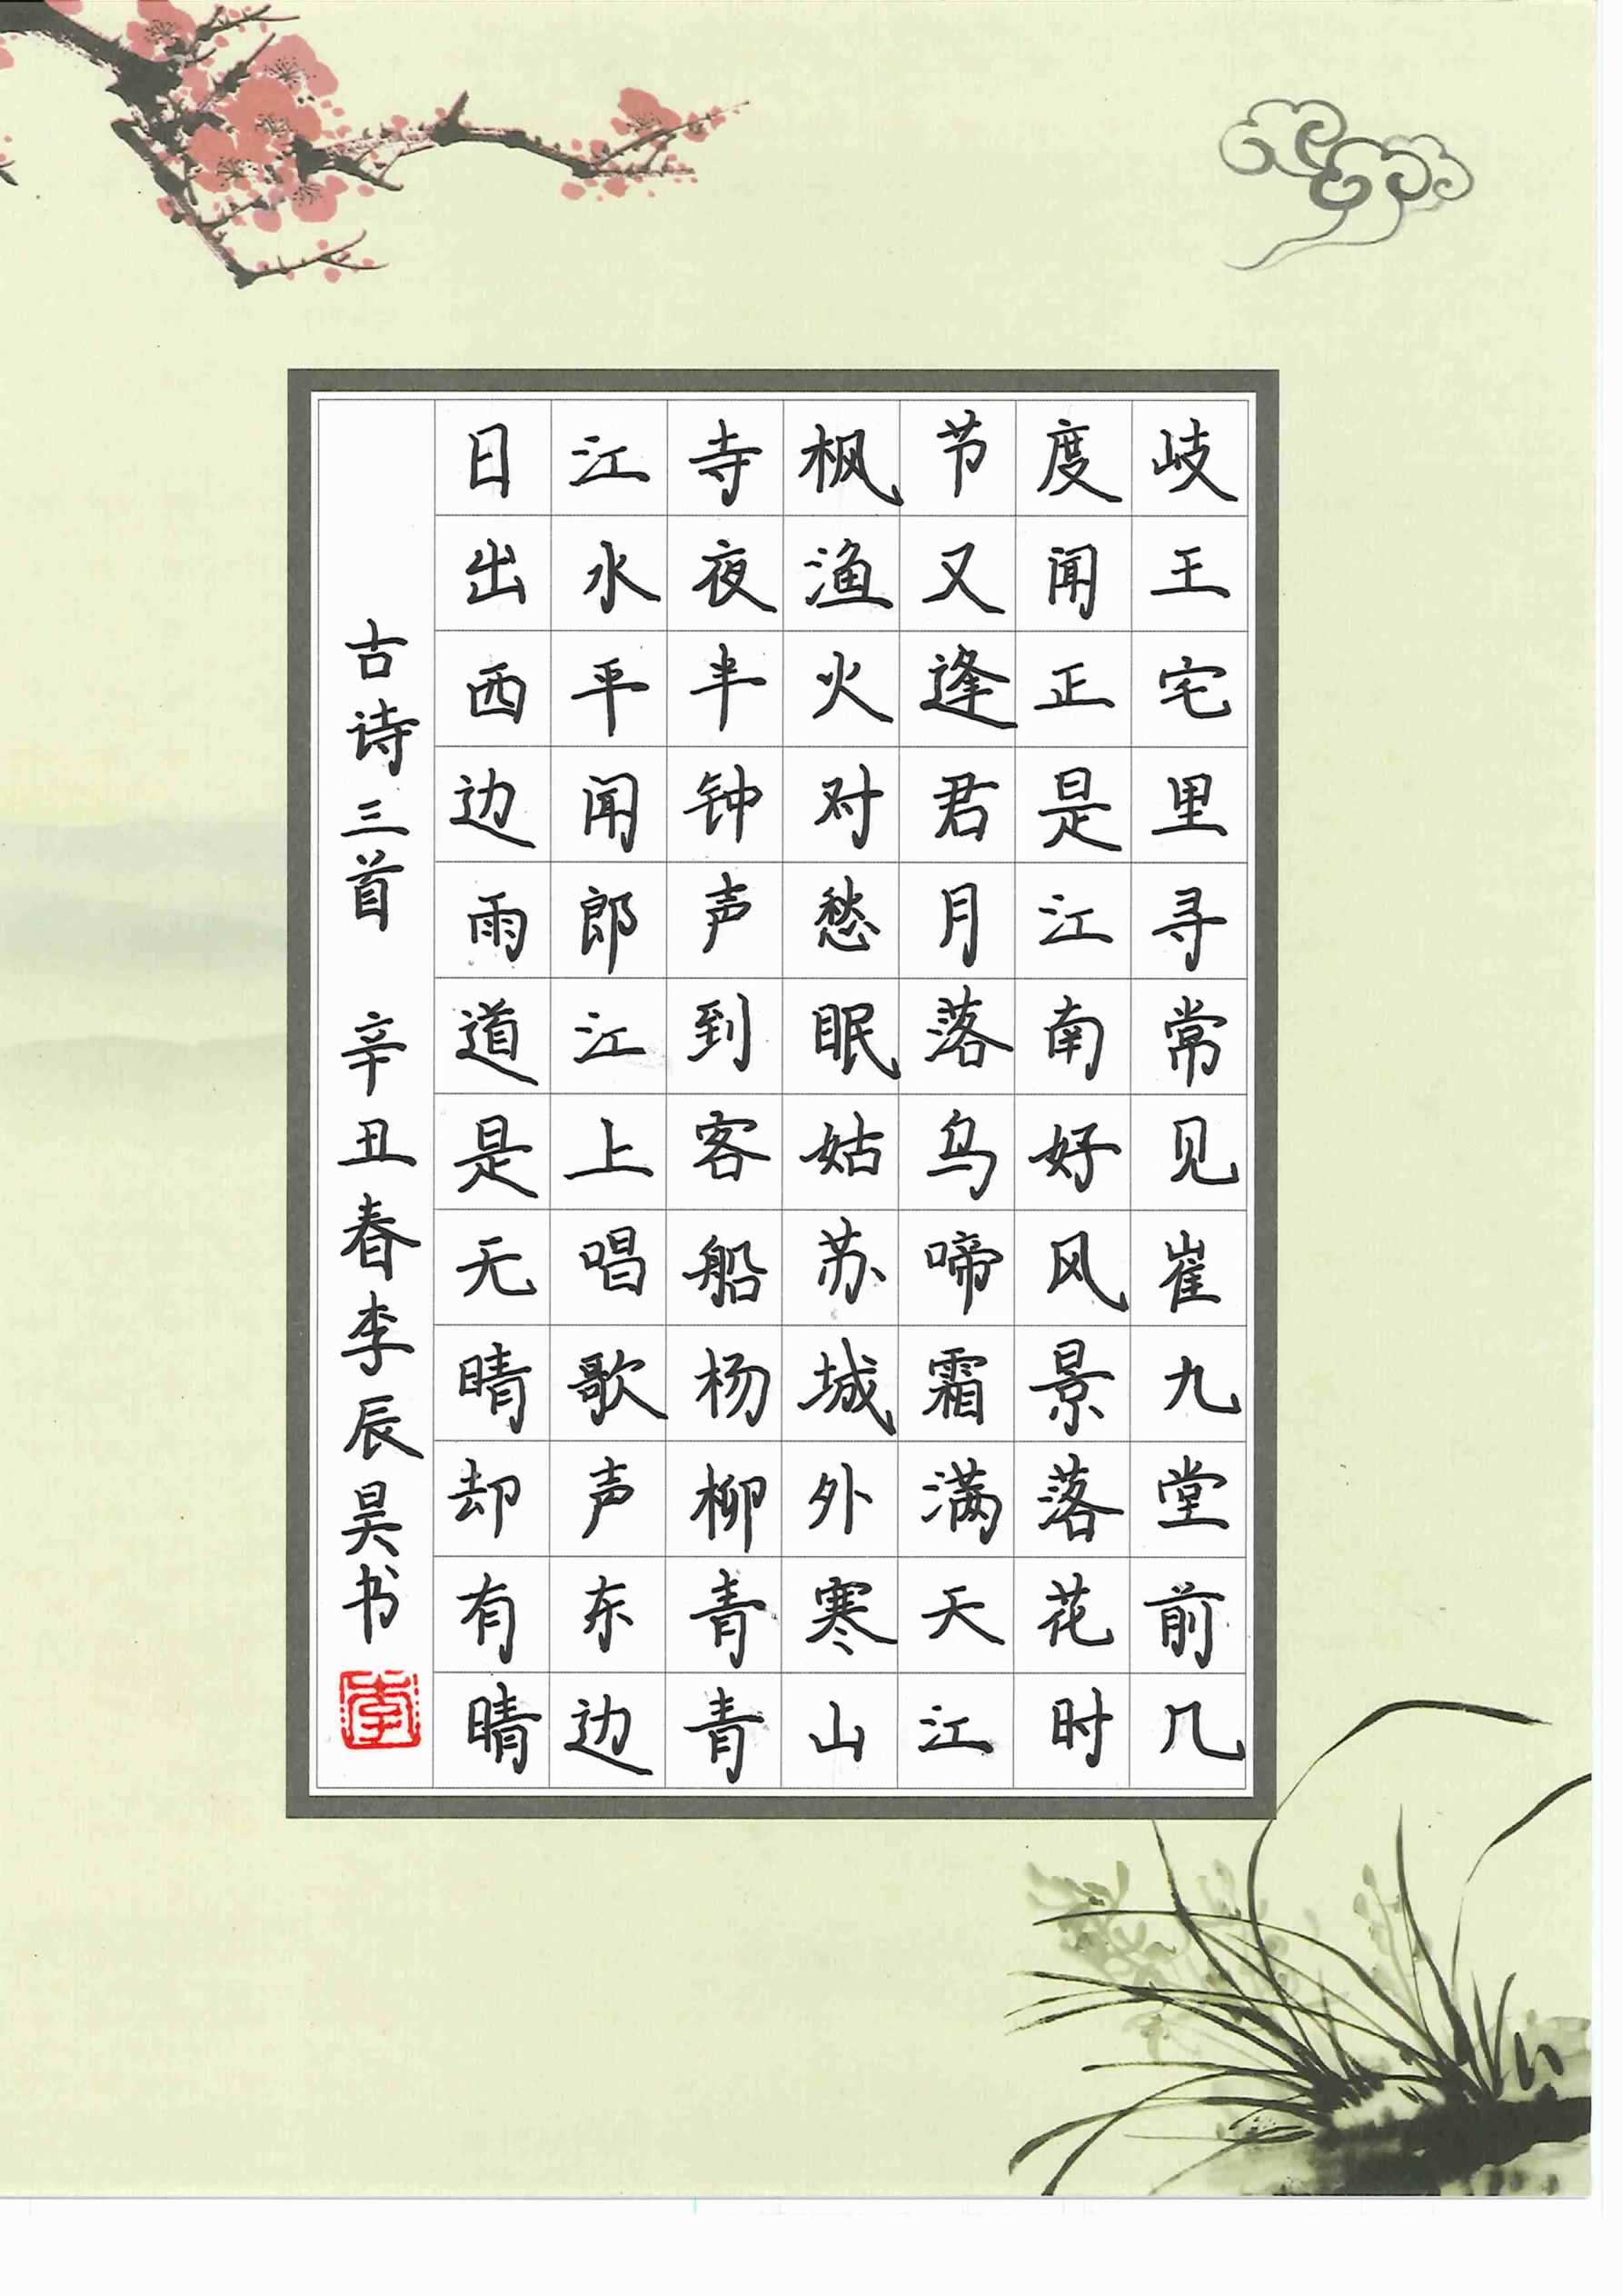 歧王宅里寻常见崔九堂前几
度闻正是江南好风景落花时
节又逢君月落乌啼霜满天江
枫渔火对愁眠姑苏城外寒山
寺夜半钟声到客船杨柳青青
江水平闻郎江上唱歌声东边
日出西边雨道是无晴却有晴
古诗三首 辛丑春李辰昊书
李